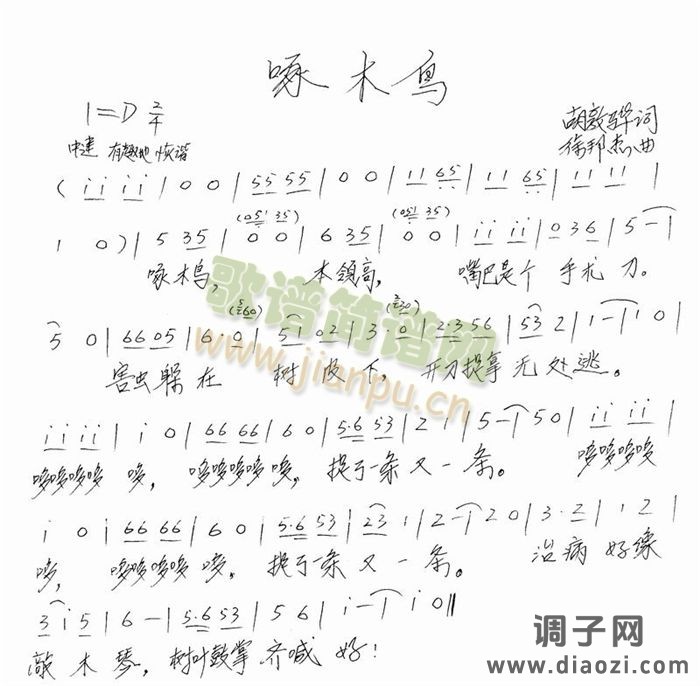 啄木鸟
1=D 2/4
胡敦骅词
中速 有趣地 诙谐
徐邦杰曲
( i i i i | 0 0 | 55 55 | 0 0 | 11 65 | 11 65 | 11 11 |
(051 35) (051 35)
1 0 ) | 5 35 | 0 0 | 6 35 | 0 0 | i i i i | 0 3 6 | 5 - |
啄木鸟, 本领高, 嘴巴是个 手术 刀。
5 0 | 66 05 | 6·0 | 5 i 02 | 3·0 | 2·3 56 | 53 2 | 1 - | 1 0 |
害虫躲在 树 皮 下, 开刀捉拿无处逃。
i i i i | i 0 | 66 66 | 6 0 | 5·6 53 | 2 1 | 5 - | 5 0 | i i i i |
哆哆哆哆 哆, 哆哆哆哆 哆, 捉了一条 又 一 条。 哆哆哆哆
i 0 | 66 66 | 6 0 | 5·6 53 | 23 1 | 2 - | 2 0 | 3·2 | 1 2 |
哆, 哆哆哆哆 哆, 捉了一条 又 一 条。 治病 好像
3 i 5 | 6 - | 5·6 53 | 5 6 | i - | i 0 ‖
敲 木 琴, 树叶鼓掌 齐喊 好!
歌谱简谱网
www.jianpu.cn
调子网
www.diaozi.com